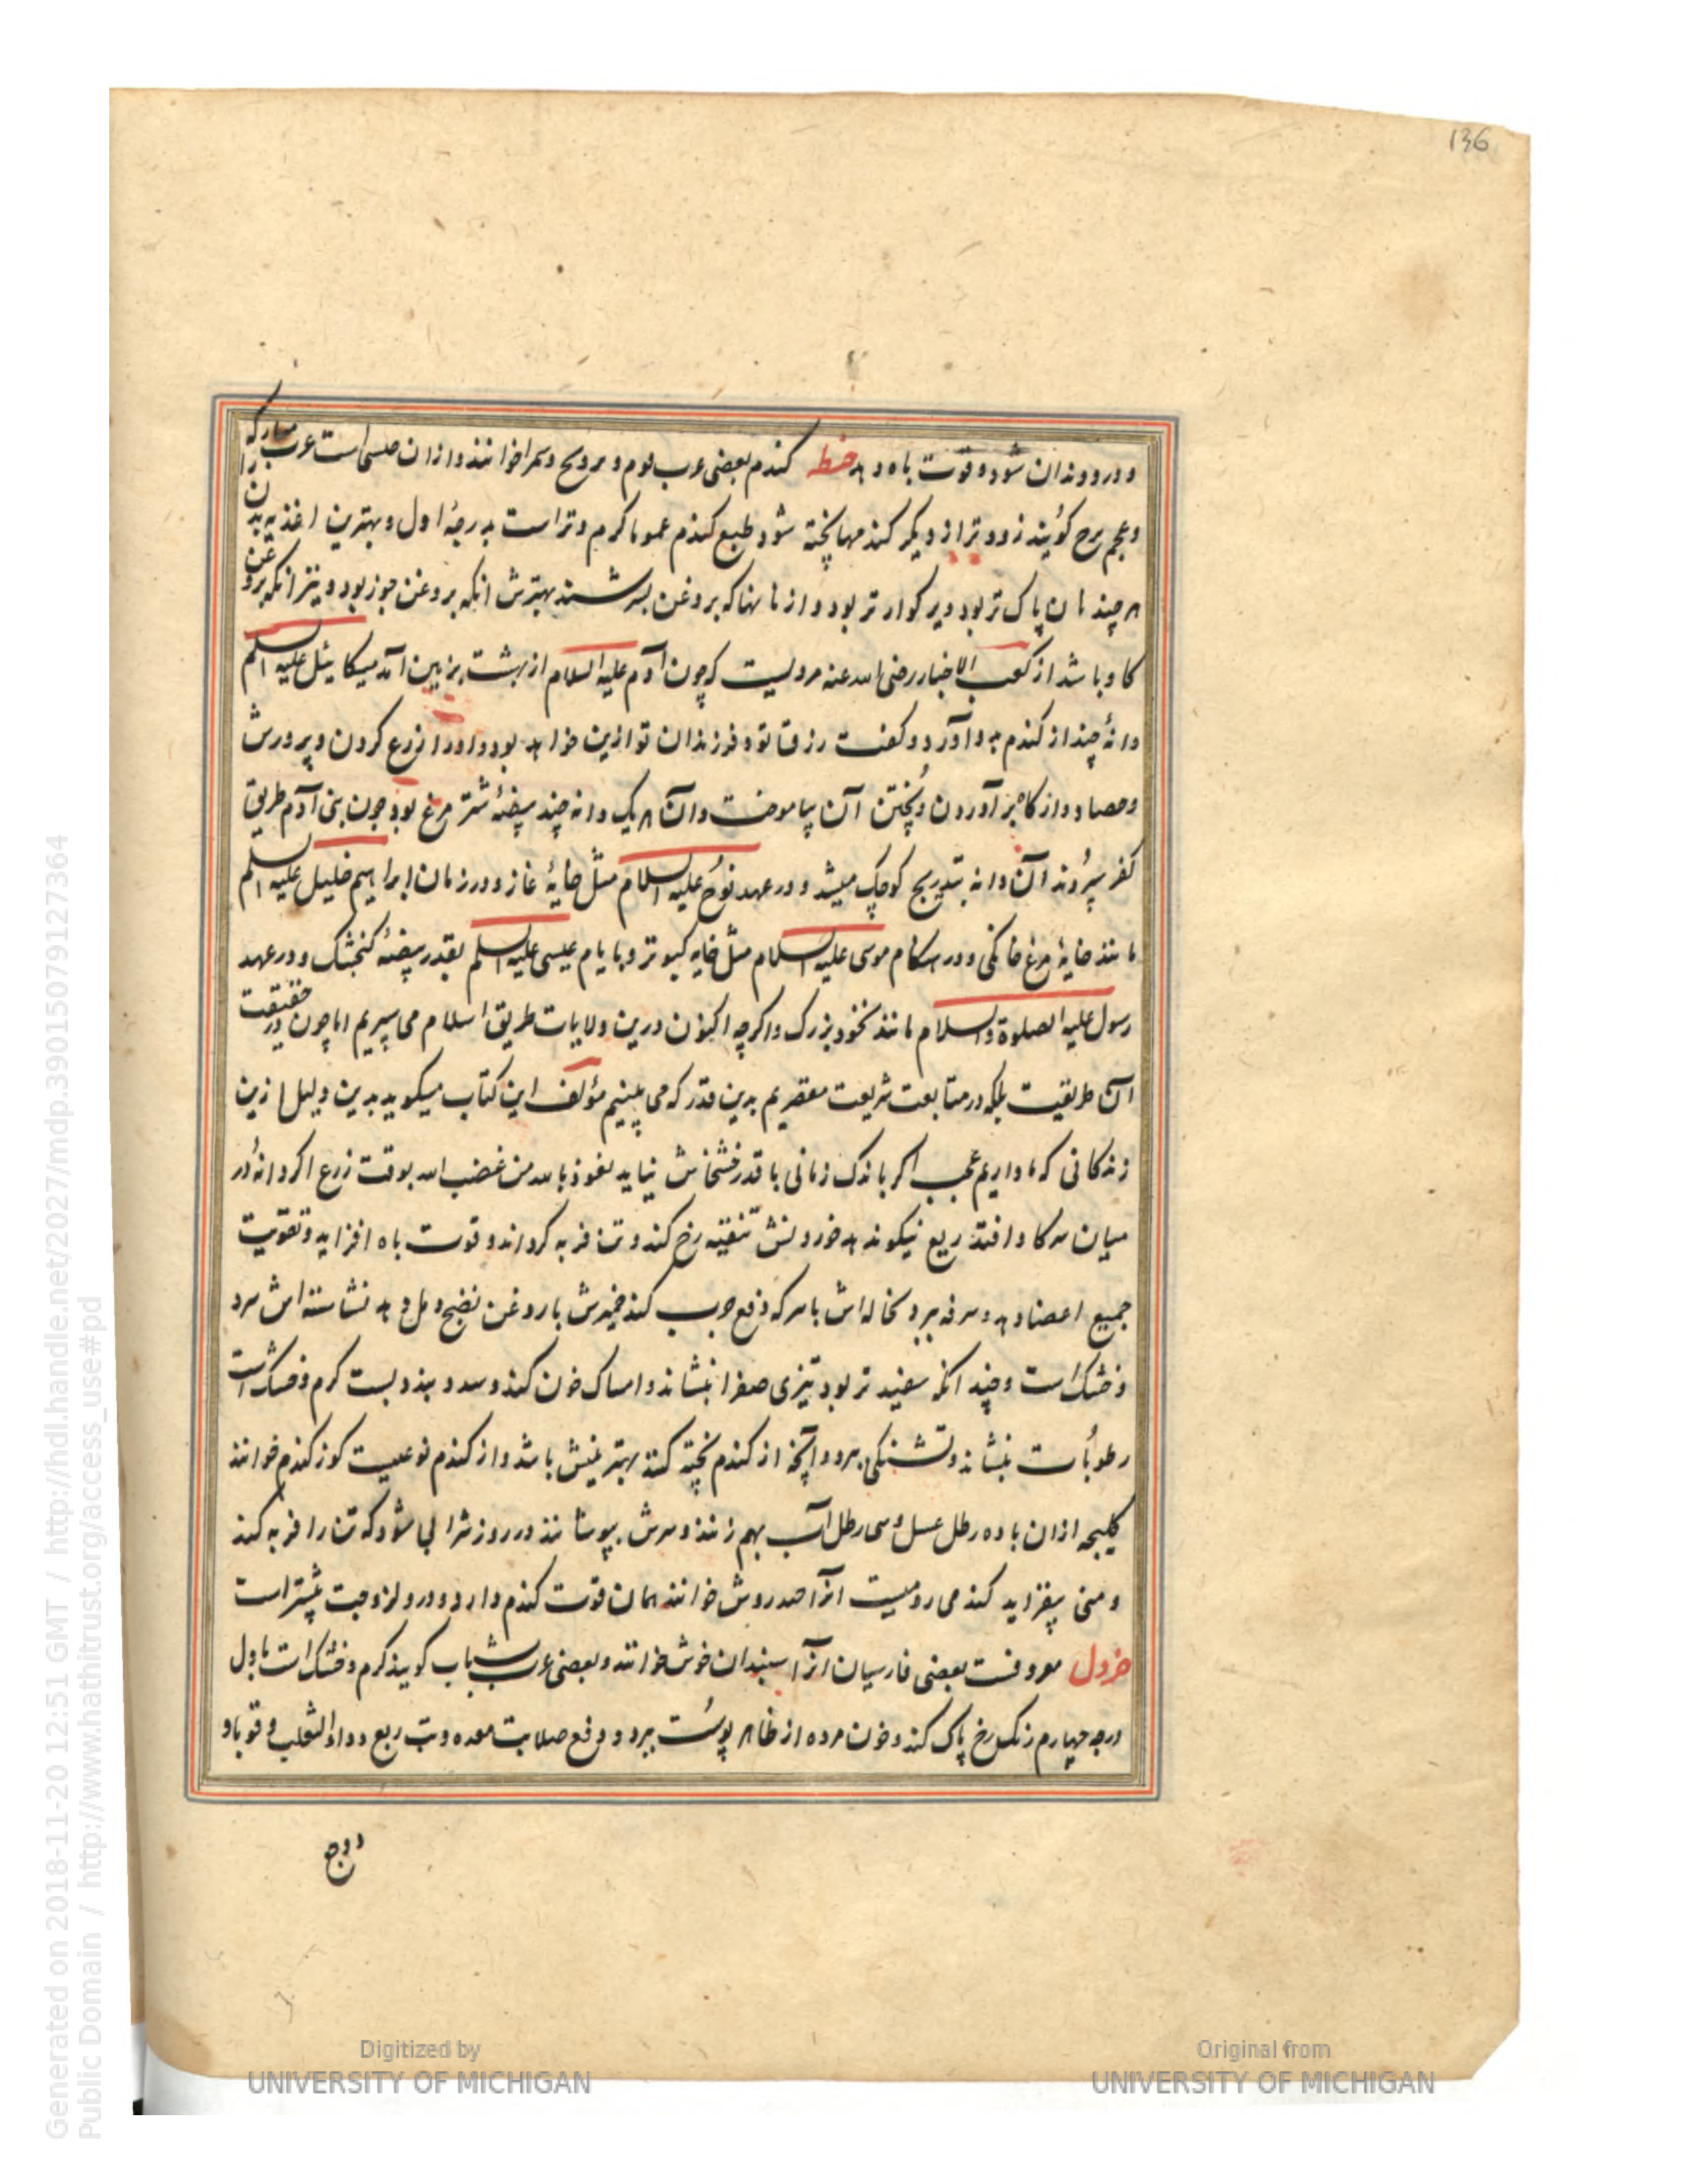 136
و درد دندان شود و قوت باه دهد حنطه کندم بعضی عرب فوم و بر و قمح و سمرا خوانند و ازان جنسی است عرب مبارکه را
و عجم برح کویند زودتر از دیکر کندمها پخته شود طبع کندم عموما کرم و تر است بدرجهٔ اول و بهترین اغذیه بدن
هر چند نان پاک تر بود دیر کوارتر بود و از نانها که بروغن بسرشند بهترش انکه بروغن جوز بود و نیز انکه بروغن
کاو باشد از کعب الاخبار رضی الله عنه مرویست که چون آدم علیه السلام از بهشت بزمین آمد میکائیل علیه السلم
دانهٔ چند از کندم بدو آورد و کفت رزق تو و فرزندان تو ازین خواهد بود و او را زرع کردن و پرورش
و حصاد و از کاه برآوردن و پختن آن بیاموخت و آن هر یک دانه چند بیضهٔ شتر مرغ بود چون بنی آدم طریق
کفر سپردند آن دانه بتدریج کوچک میشد و در عهد نوح علیه السلام مثل خایهٔ غاز و در زمان ابراهیم خلیل علیه السلم
مانند خایهٔ مرغ خانکی و در هنکام موسی علیه السلام مثل خایه کبوتر و بایام عیسی علیه السلم بقدر بیضهٔ کنجشک و در عهد
رسول علیه الصلوة والسلام مانند نخود بزرک و اکرچه اکنون درین ولایات طریق اسلام می سپریم اما چون در حقیقت
آن طریقیت بلکه در متابعت شریعت مقصریم بدین قدر که می بینیم مؤلف این کتاب میکوید بدین دلیل ازین
زندکانی که ما داریم عجب اکر باندک زمانی با قدر خشخاش نیاید نعوذ بالله من غضب الله بوقت زرع اکر دانهٔ در
میان سر کاو افتد ریع نیکو ندهد خوردنش تنقیه رخ کند و تن فربه کرداند و قوت باه افزاید و تقویت
جمیع اعضا دهد و سرفه ببرد نخاله اش با سرکه دفع جرب کند خمیرش با روغن نضج دمل دهد نشاسته اش سرد
و خشک است و چند انکه سفید تر بود تیزی صفرا بنشاند و امساک خون کند و سدد بندد بست کرم و خشک است
رطوبات بنشاند و تشنکی ببرد و آنچه از کندم پخته کنند بهترینش باشد و از کندم نوعیست کوز کندم خوانند
کلیجه ازان با ده رطل عسل و سی رطل آب بهم زنند و سرش بپوشانند در روز شرابی شود که تن را فربه کند
و منی بیفزاید کندمی رومیست انرا خندروش خوانند همان قوت کندم دارد و درو لزوجت بیشتر است
خردل معروفست بعضی فارسیان انرا سبندان خوش خوانند و بعضی عرب شباب کویند کرم و خشک است باول
درجه چهارم زنک رخ پاک کند و خون مرده از ظاهر پوست ببرد و دفع صلابت معده و تب ربع و داء الثعلب و قوبا و
و وجع
Generated on 2018-11-20 12:51 GMT / http://hdl.handle.net/2027/mdp.39015079127364
Public Domain / http://www.hathitrust.org/access_use#pd
Digitized by
UNIVERSITY OF MICHIGAN
Original from
UNIVERSITY OF MICHIGAN